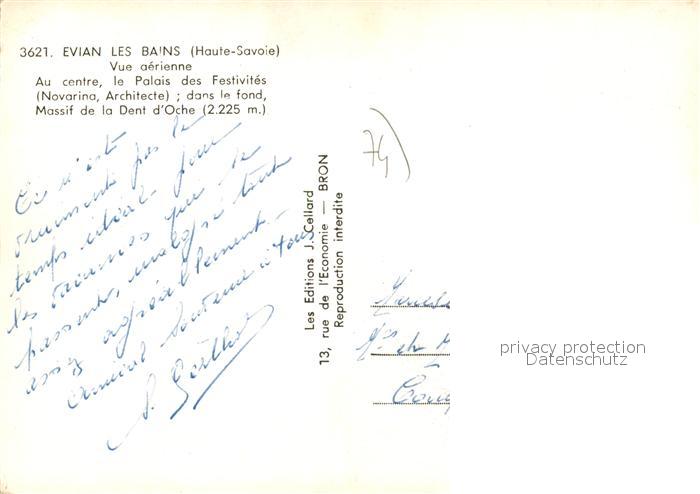 3621. EVIAN LES BAINS (Haute-Savoie)
Vue aérienne
Au centre, le Palais des Festivités
(Novarina, Architecte) ; dans le fond,
Massif de la Dent d'Oche (2.225 m.)
Ce n'est
vraiment pas le
temps idéal pour
les vacances qui se
passent, malgré tout
assez agréablement.
Amical Souvenir à tous
Les Editions J. Cellard
13, rue de l'Economie — BRON
Reproduction interdite
74
privacy protection
Datenschutz